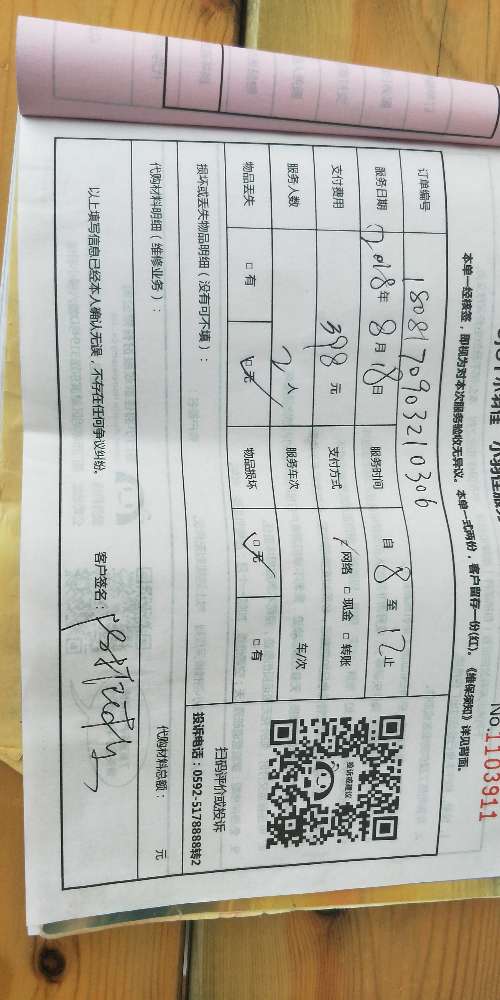 No.1103911
本单一经核签，即视为对本次服务验收无异议。本单一式两份，客户留存一份(红)。《维保须知》详见背面。
订单编号 180817090321030б
服务日期 2018年8月18日 服务时间 自8至12止
支付费用 398元 支付方式 网络 □ 现金 □ 转账
服务人数 2人 服务车次 车/次
物品丢失 □ 有 □ 无 物品损坏 □ 无 □ 有
投诉或建议
扫码评价或投诉
投诉电话：0592-5178888转2
损坏或丢失物品明细（没有可不填）：
代购材料明细（维修业务）：
代购材料总额： 元
以上填写信息已经本人确认无误，不存在任何争议纠纷。 客户签名：